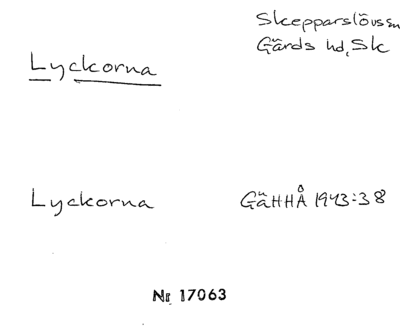 Skepparslövs sn
Gärds hd, Sk
Lyckorna
Lyckorna
GäHHÅ 1943:38
Nr 17063